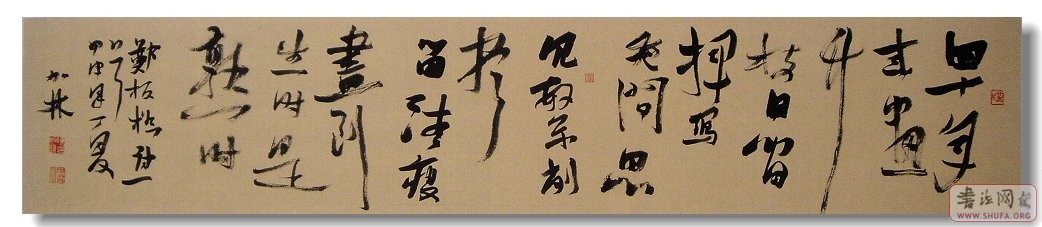 四十年
来畫
竹
枝日间
挥写
夜间思
冗繁削
尽
留清瘦
畫到
生时是
熟时
鄭板桥诗一
書法网
WWW.SHUFA.ORG